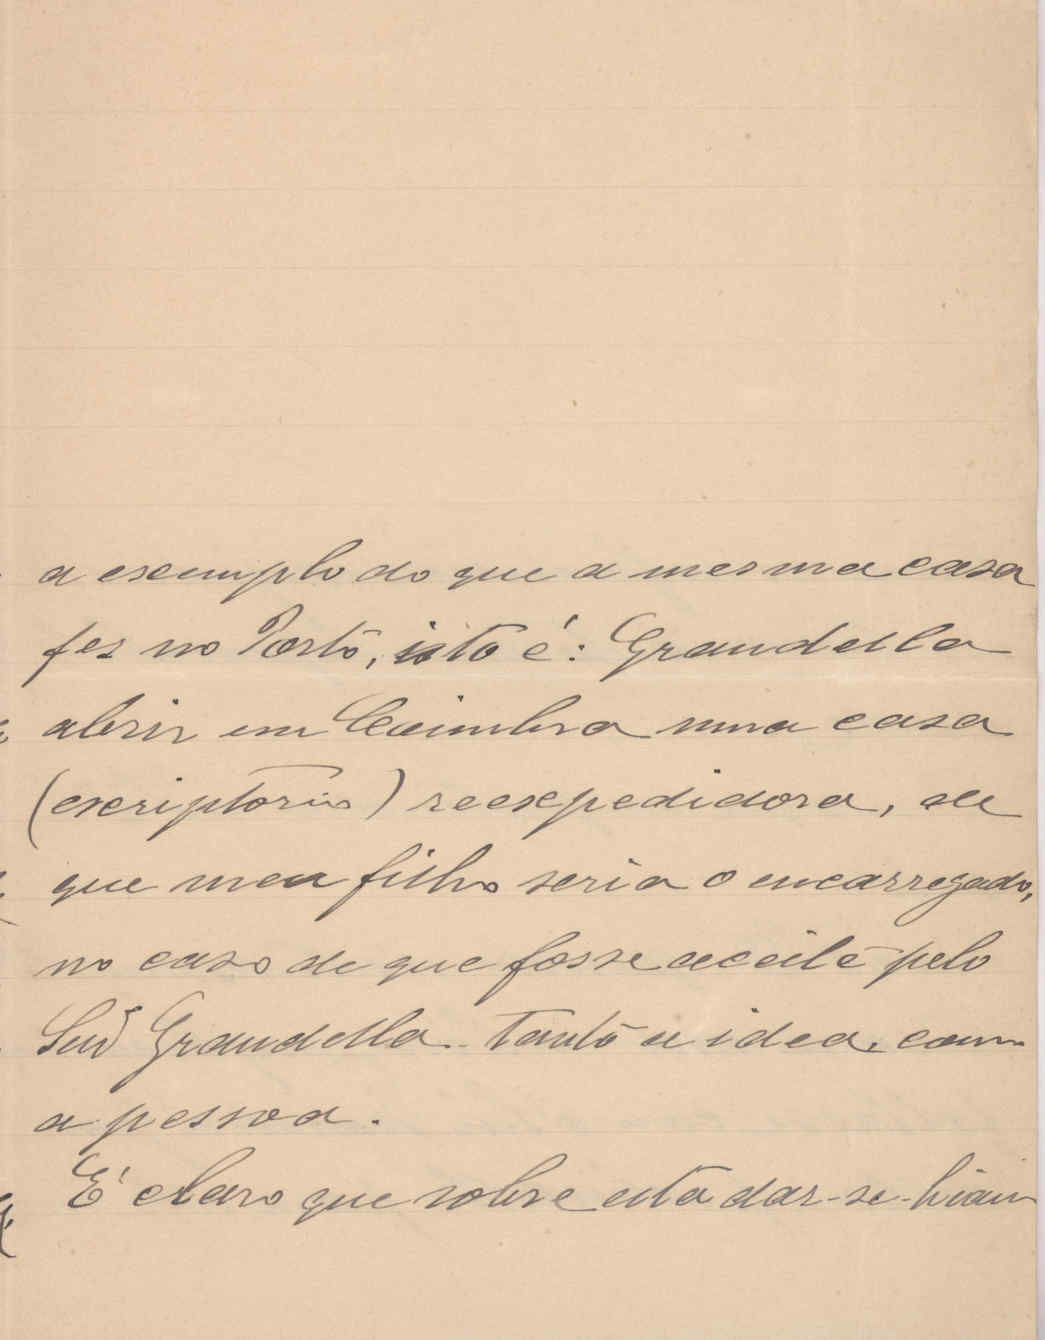 a exemplo do que a mesma casa
fez no Porto, isto é: Grandella
abrir em Coimbra uma casa
(escriptorio) reexpedidora, de
que meu filho seria o encarregado,
no caso de que fosse acceite pelo
Snr Grandella tanto a idea, como
a pessoa.
É claro que sobre esta dar-se-hiam